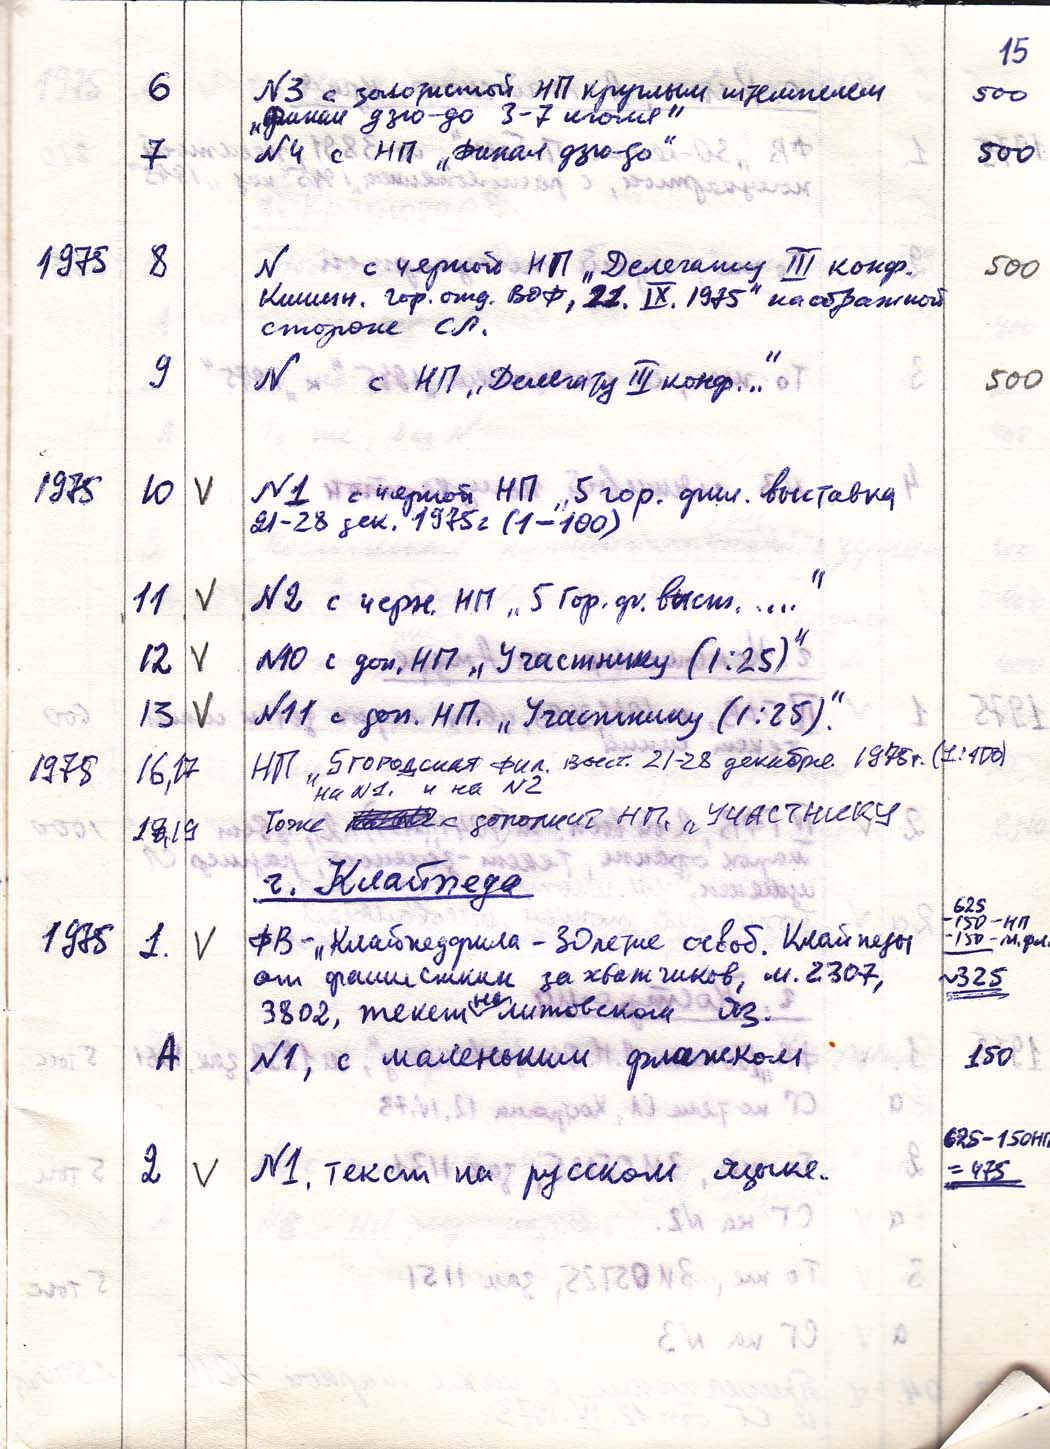 15
6 N3 с золотистой НП круглым штемпелем 500
„финал дзю-до 3-7 июля"
7 N4 с НП „Финал дзю-до" 500
1975 8 N с черной НП „Делегату III конф. 500
Кишин. гор. отд. ВОФ, 21. IX. 1975" на обратной
стороне СЛ.
9 N с НП „Делегату III конф..." 500
1975 10 V N1 с черной НП „5 гор. фил. выставка
21-28 дек. 1975г (1-100)
11 V N2 с черн. НП „5 Гор. ф. выст. ...."
12 V N10 с доп. НП „Участнику (1:25)"
13 V N11 с доп. НП. „Участнику (1:25)."
1975 16,17 НП „5 городская фил. выст. 21-28 декабря 1975г. (1:100)
на N1. и на N2
18,19 Тоже с дополнит НП. „УЧАСТНИКУ
г. Клайпеда
1975 1. V ФВ-„Клайпедфила - 30летие освоб. Клайпеды
от фашистких захватчиков, м. 2307,
3802, текст на литовском яз.
625
-150-НП
-150-м.фл.
~325
А N1, с маленьким флажком 150
2 V N1, текст на русском языке.
625-150НП
= 475